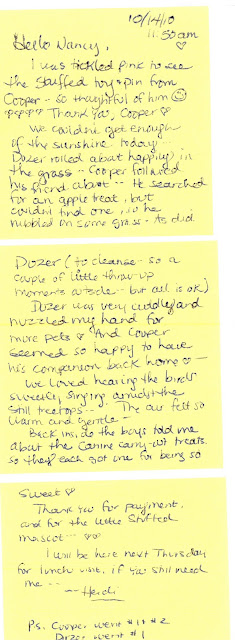 10/14/10
11:50am
Hello Nancy, ♡
I was tickled pink to see
the stuffed toy & pin from
Cooper -- so thoughtful of him ☺
♡♡♡♡♡ Thank You, Cooper ♡
We couldn't get enough
of the sunshine today --
Dozer rolled about happily in
the grass -- Cooper followed
his friend about -- He searched
for an apple treat, but
couldn't find one, so he
nibbled on some grass. As did
Dozer (to cleanse - so a
couple of little throw-up
moments outside - but all is ok)
Dozer was very cuddley and
nuzzled my hand for
more pets ♡ And Cooper
seemed so happy to have
his companion back home ♡ --
We loved hearing the birds
sweetly singing amidst the
still treetops -- The air felt so
warm and gentle --
Back inside the boys told me
about the canine carry-out treats.
so they each got one for being so
sweet ♡
Thank You for payment,
and for the little stuffed
mascot -- ♡♡
I will be here next Thursday
for lunch visit, if you still need
me --
~ Heidi
P.S. Cooper went #1 & #2
Dozer went #1